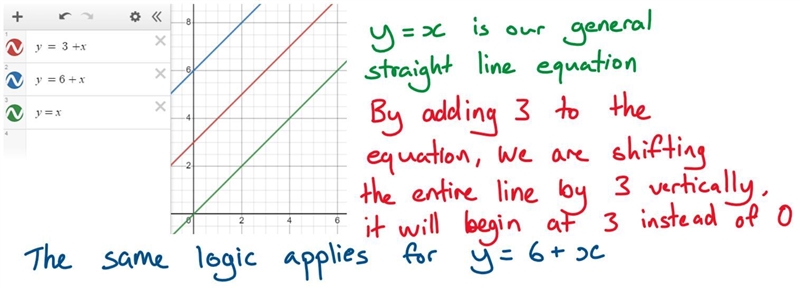 1
y = 3 + x
2
y = 6 + x
3
y = x
4
8
6
4
2
0
2
4
6
y = x is our general
straight line equation
By adding 3 to the
equation, we are shifting
the entire line by 3 vertically,
it will begin at 3 instead of 0
The same logic applies for y = 6 + x